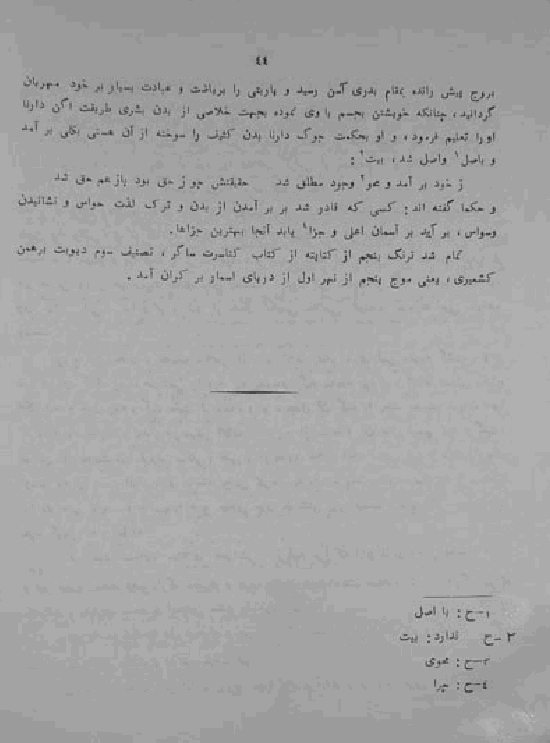 ٤٤
بروج پیش رانده بمقام بدری آسن رسید و پاربتی را بریاضت و عبادت بسیار بر خود مهربان
گردانید، چنانکه خویشتن بجسم باوی نموده بجهت خلاصی از بدن بشری طریقت اگن دارنا
اورا تعلیم فرموده و او بحکمت جوک دارنا بدن کثیف را سوخته از آن هستی بکلی بر آمد
و باصل¹ واصل شد، بیت²:
ز خود بر آمد و محو³ وجود مطلق شد حقیقتش چو ز حق بود باز هم حق شد
و حکما گفته اند: کسی که قادر شد بر بر آمدن از بدن و ترک لذت حواس و نشانیدن
وسواس، بر آید بر آسمان اعلی و جزا⁴ یابد آنجا بهترین جزاها.
تمام شد ترنگ پنجم از کتاپته از کتاب کتاسرت ساگر، تصنیف سوم دیوبت برهمن
کشمیری، یعنی موج پنجم از نهر اول از دریای اسمار بر کران آمد.
۱-ح: با اصل
۲-ح ندارد: بیت
۳-ح: محوی
٤-ح: چرا